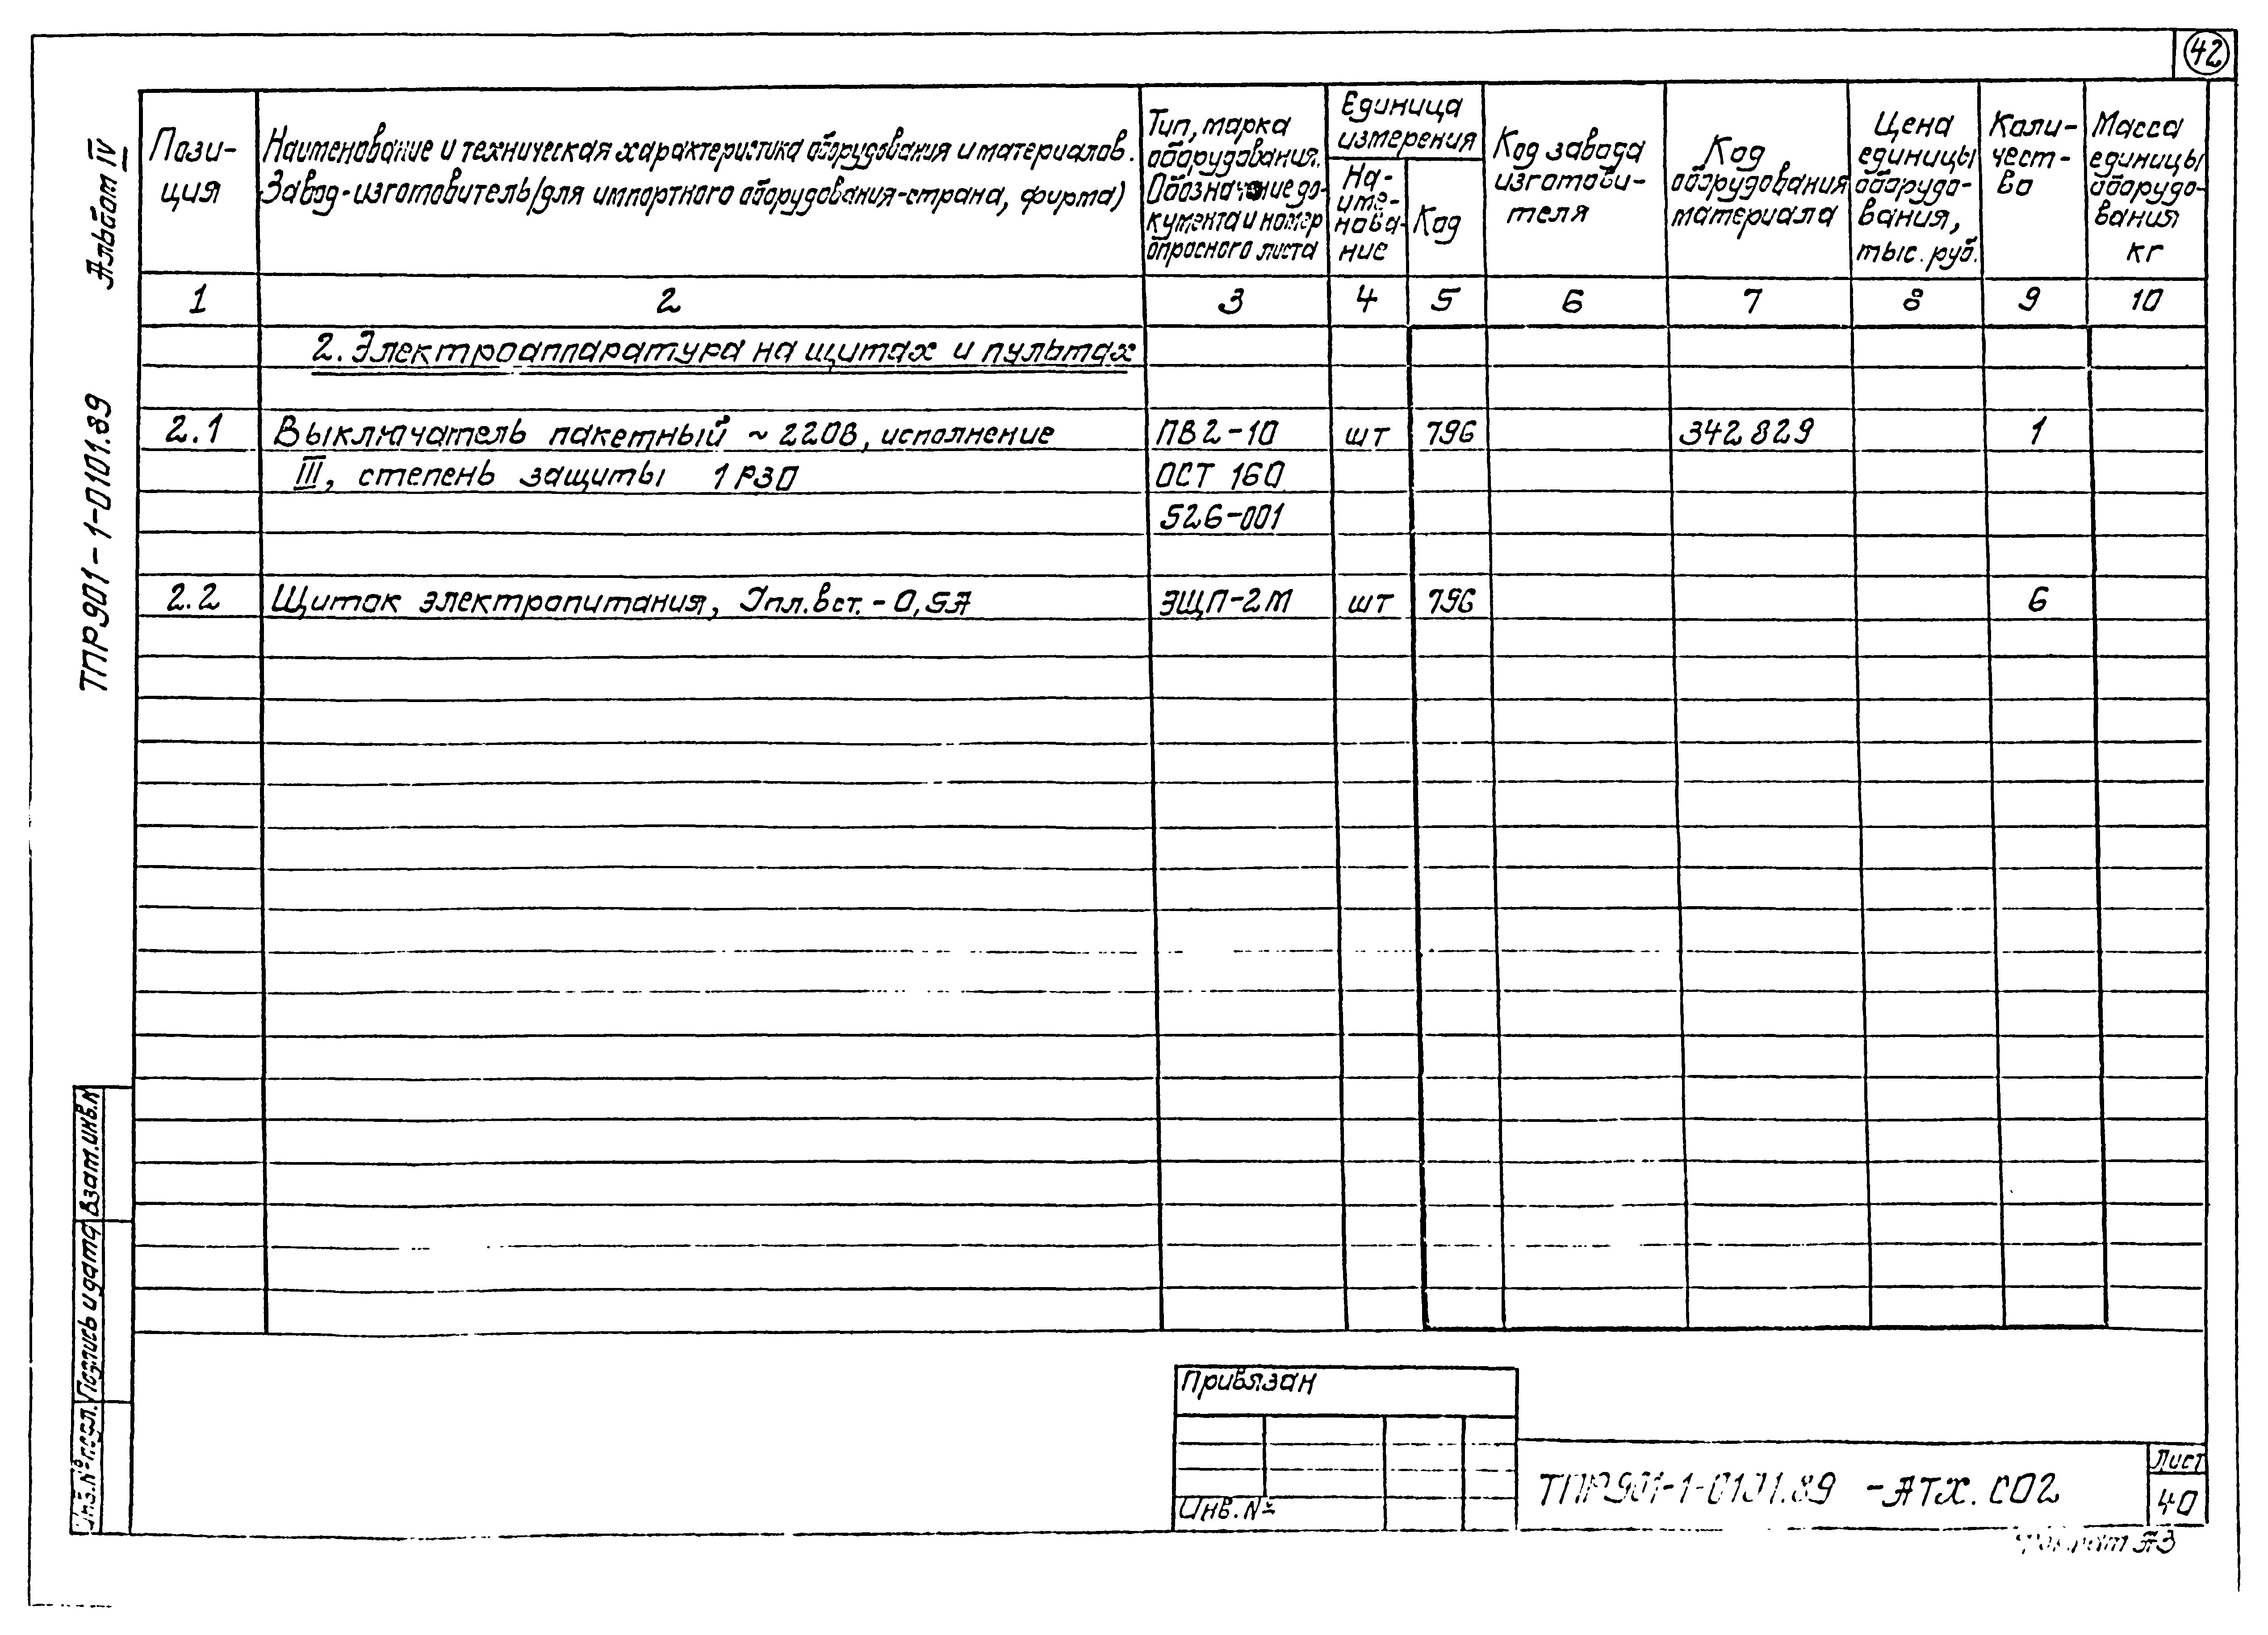 42
Альбом IV
ТПР901-1-0101.89
Пози-
ция
Наименование и техническая характеристика оборудования и материалов.
Завод-изготовитель (для импортного оборудования-страна, фирма)
Тип, марка
оборудования.
Обозначение до-
кумента и номер
опросного листа
Единица
измерения
На-
име-
нова-
ние
Код
Код завода
изготови-
теля
Код
оборудования
материала
Цена
единицы
оборудо-
вания,
тыс. руб.
Коли-
чест-
во
Масса
единицы
оборудо-
вания
кг
1 2 3 4 5 6 7 8 9 10
2. Электроаппаратура на щитах и пультах
2.1 Выключатель пакетный ~ 220В, исполнение ПВ2-10 шт 796 342829 1
III, степень защиты 1Р30 ОСТ 160
526-001
2.2 Щиток электропитания, Iпл.вст. - 0,5А ЭЩП-2М шт 796 6
Взам.инв.№
Подпись и дата
Инв.№ подл.
Привязан
Инв. №
ТПР901-1-0101.89 -АТХ. СО2
Лист
40
Формат А3